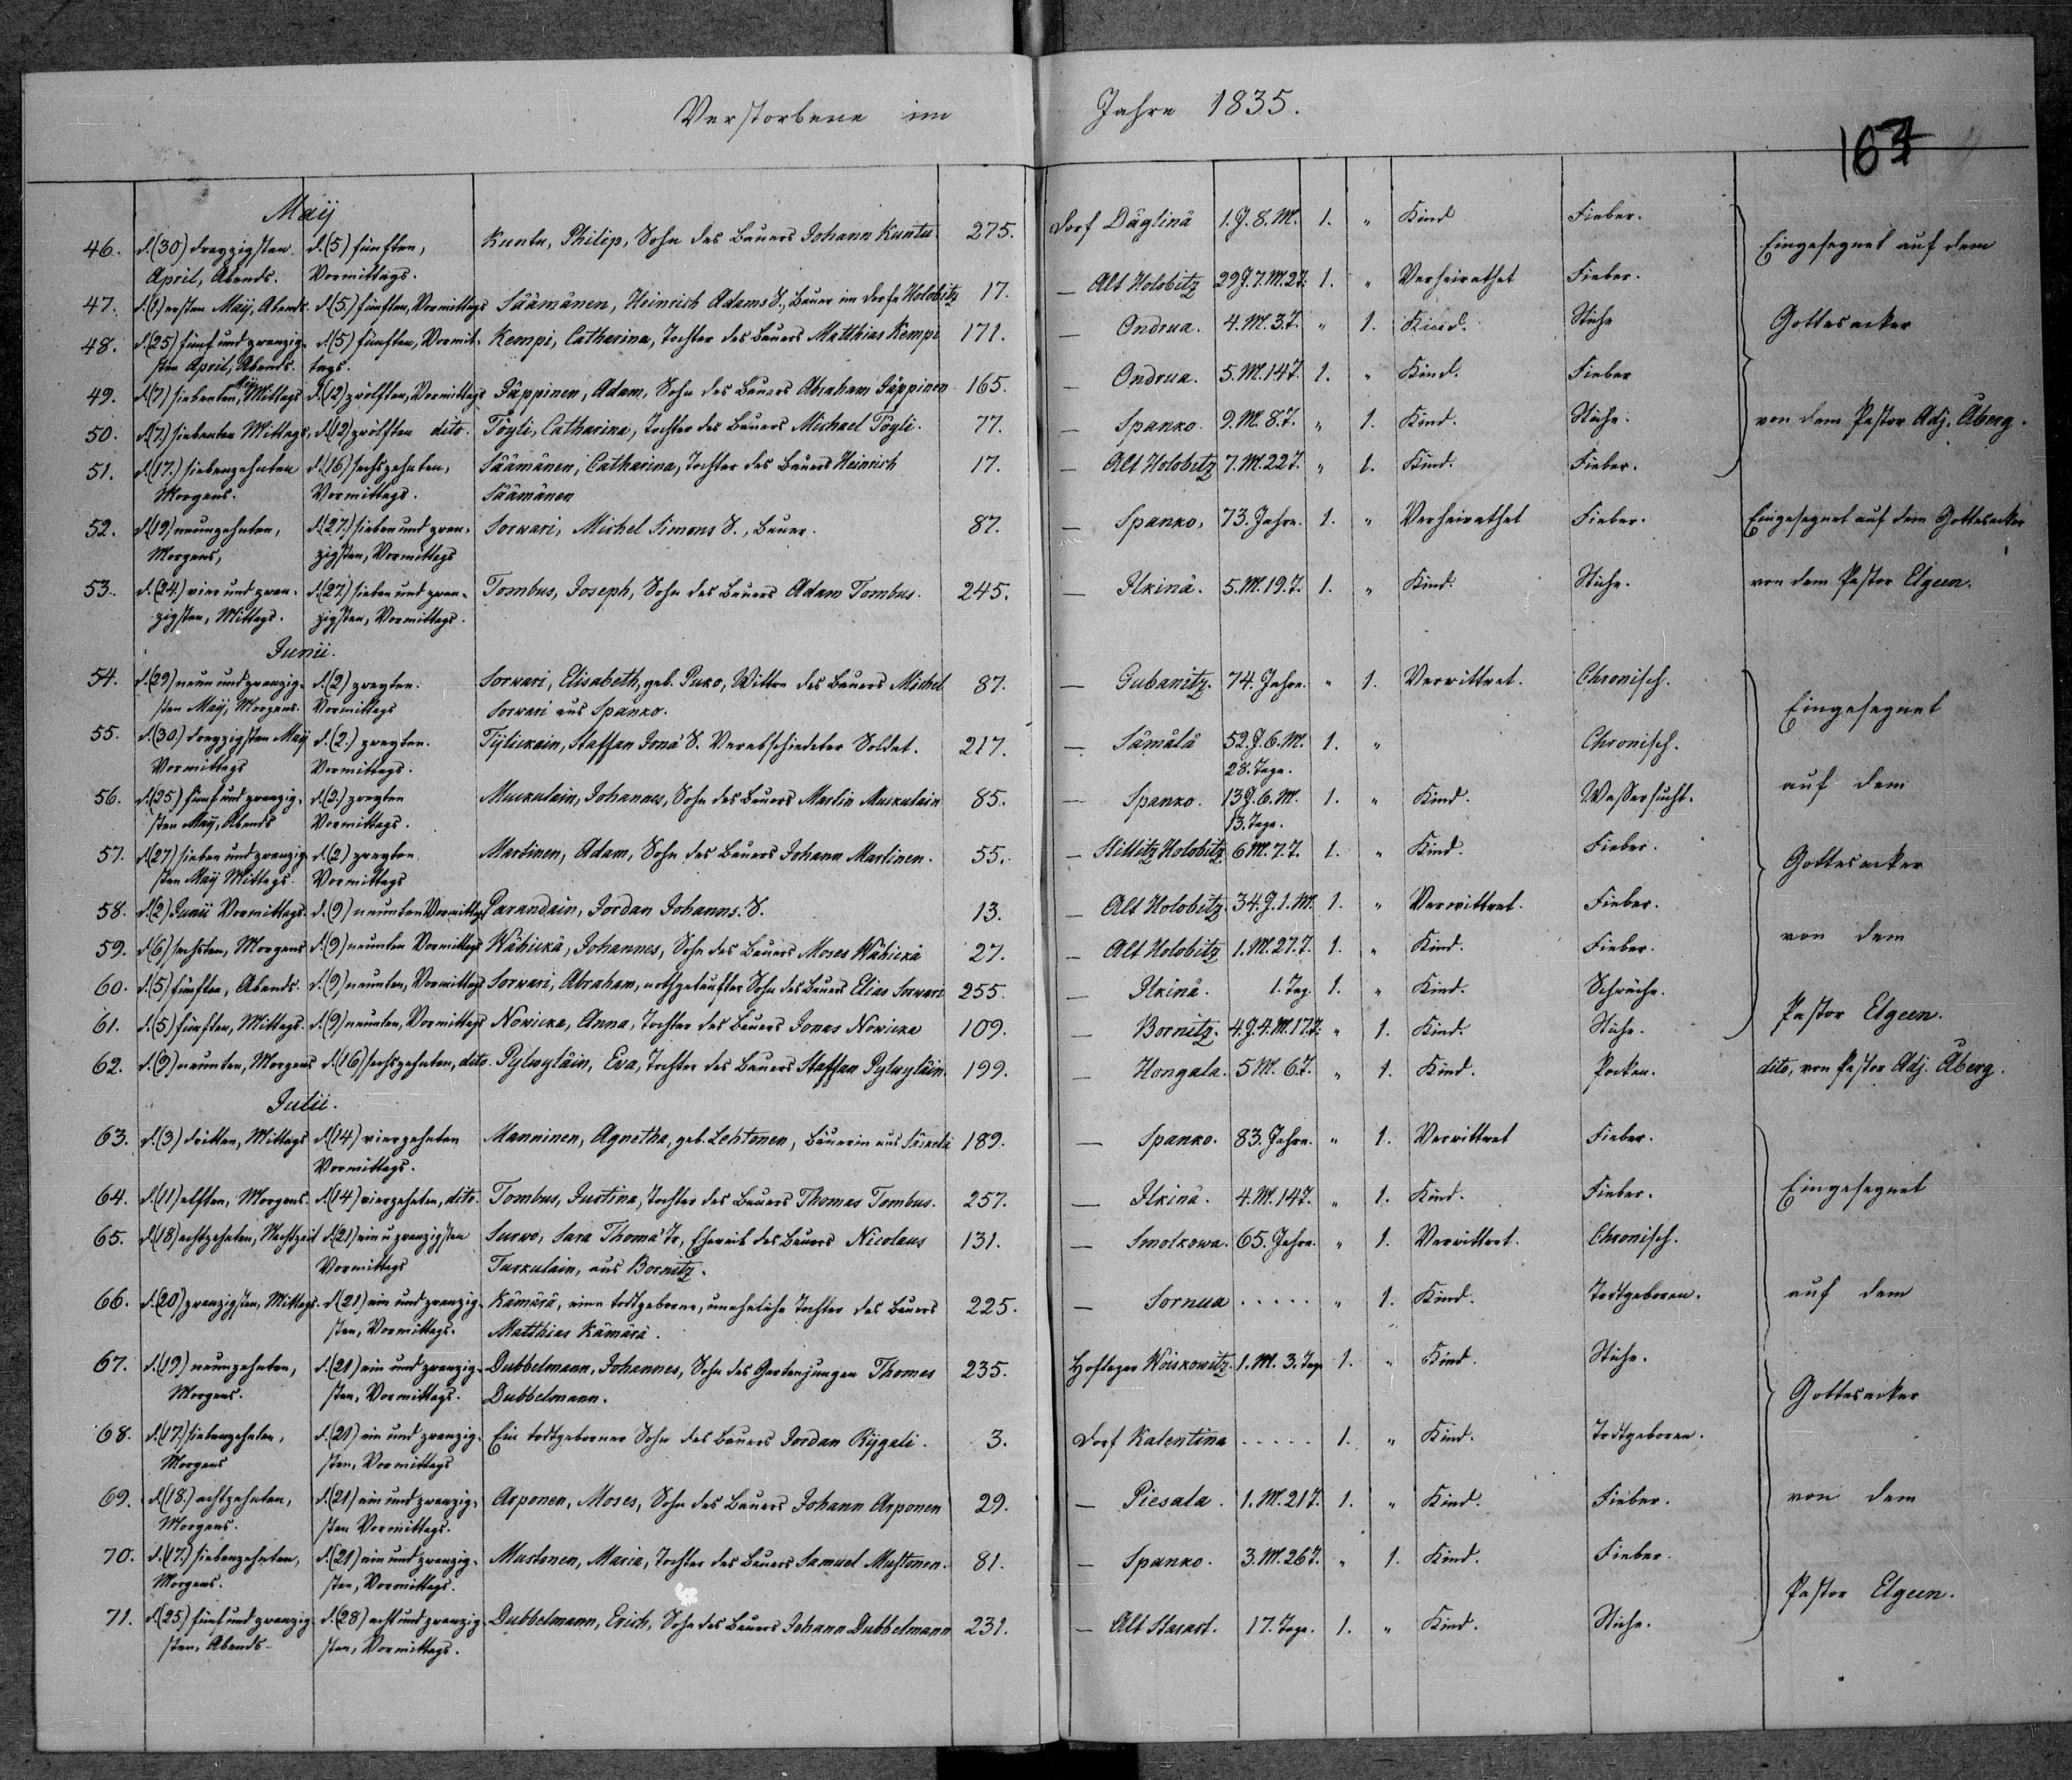 Verstorbene im Jahre 1835.
163
Maÿ
46. d. (30) dreyzigsten d. (5) fünften, Kuntu, Philip, Sohn des Bauers Johann Kuntu. 275. Dorf Däglinä 1. J. 8. M. 1. " Kind Fieber. Eingesegnet auf dem
April, Abends. Vormittags.
47. d. (1) ersten Maÿ, Abends. d. (5.) fünften, Vormittags Säämänen, Heinrich Adams S., Bauer im Dorfe Holobitz 17. — Alt Holobitz 29 J. 7. M. 2 T. 1. " Verheirathet Fieber.
48. d. (25) fünf und zwanzig- d. (5) fünften, Vormit- Kempi, Catharina, Tochter des Bauers Matthias Kempi 171. — Ondrua. 4. M. 3 T. " 1. Kind. Stiche Gottesacker
sten April, Abends. tags.
49. d. (7) siebenten Maÿ, Mittags d. (12) zwölften, Vormittags Jäppinen, Adam, Sohn des Bauers Abraham Jäppinen 165. — Ondrua. 5. M. 14 T. 1. " Kind. Fieber
50. d. (7.) siebenten Mittags, d. (12) zwölften dito. Töyli, Catharina, Tochter des Bauers Michael Töyli. 77. — Spanko. 9. M. 8. T. " 1. Kind. Stiche. von dem Pastor Adj. Åberg.
51. d. (17.) siebenzehnten d. (16) sechszehnten, Säämänen, Catharina, Tochter des Bauers Heinrich 17. — Alt Holobitz 7. M. 22 T. " 1. Kind. Fieber.
Morgens. Vormittags. Säämänen
52. d. (19) neunzehnten, d. (27.) sieben und zwan- Sorwari, Michel Simons S., Bauer. 87. — Spanko, 73. Jahre. 1. " Verheirathet Fieber. Eingesegnet auf dem Gottesacker
Morgens, zigsten, Vormittags
53. d. (24.) vier und zwan- d. (27.) sieben und zwan- Tombus, Joseph, Sohn des Bauers Adam Tombus. 245. — Ilkinä. 5. M. 19. T. 1. " Kind. Stiche. von dem Pastor Elgeen.
zigsten, Mittags. zigsten, Vormittags.
Junii.
54. d. (29) neun und zwanzig- d. (2) zweyten. Sorwari, Elisabeth, geb. Puko, Wittwe des Bauers Michel 87. — Gubanitz. 74. Jahre. " 1. Verwittwet. Chronisch. Eingesegnet
sten Maÿ, Morgens. Vormittags Sorwari aus Spanko.
55. d. (30.) dreyzigsten Maÿ d. (2.) zweyten. Tÿlickain, Staffan Jona's S. Verabschiedeter Soldat. 217. — Sämälä 52. J. 6. M. 1. " Chronisch.
Vormittags Vormittags. 28. Tage.
56. d. (25) fünf und zwanzig- d. (2.) zweyten Muckulain, Johannes, Sohn des Bauers Martin Muckulain 85. — Spanko. 13 J. 6. M. 1. " Kind. Wassersucht. auf dem
sten Maÿ, Abends Vormittags. 13. Tage.
57. d. (27) sieben und zwanzig- d. (2) zweyten Martinen, Adam, Sohn des Bauers Johann Martinen. 55. — Stillitz Holobitz 6 M. 7. T. 1. " Kind. Fieber. Gottesacker
sten Maÿ Mittags. Vormittags
58. d. (2) Junii Vormittags. d. (9) neunten Vormittags Parandain, Jordan Johanns. S. 13. — Alt Holobitz. 34. J. 1. M. 1. " Verwittwet. Fieber.
59. d. (6) sechsten, Morgens d. (9) neunten Vormittags Wähickä, Johannes, Sohn des Bauers Moses Wähickä 27. — Alt Holobitz 1. M. 27. T. 1. " Kind. Fieber. von dem
60. d. (5) fünften, Abends. d. (9) neunten, Vormittags Sorwari, Abraham, nothgetaufter Sohn des Bauers Elias Sorwari 255. — Ilkinä. 1. Tag. 1. " Kind. Schwäche.
61. d. (5) fünften, Mittags. d. (9) neunten, Vormittags Nowicka, Anna, Tochter des Bauers Jonas Nowicka 109. — Bornitz. 4. J. 4. M. 17 T. " 1. Kind. Stiche. Pastor Elgeen.
62. d. (9) neunten, Morgens d. (16) sechszehnten, dito. Pylwyläin, Eva, Tochter des Bauers Staffan Pylwyläin. 199. — Hongala. 5 M. 6 T. " 1. Kind. Pocken. dito, von Pastor Adj. Åberg.
Julii.
63. d. (3) dritten, Mittags d. (14) vierzehnten Manninen, Agnetha, geb. Lehtonen, Bäuerin aus Säskelä 189. — Spanko. 83. Jahre. " 1. Verwittwet Fieber.
Vormittags.
64. d. (11) elften, Morgens. d. (14) vierzehnten, dito. Tombus, Justina, Tochter des Bauers Thomas Tombus. 257. — Ilkinä. 4. M. 14 T. " 1. Kind. Fieber. Eingesegnet
65. d. (18) achtzehnten, Nachtzeit d. (21) ein u zwanzigsten Surwo, Sara Thoma's Tr, Eheweib des Bauers Nicolaus 131. — Smolkowa. 65. Jahre. " 1. Verwittwet. Chronisch.
Vormittags Turkulain, aus Bornitz.
66. d. (20) zwanzigsten, Mittags. d. (21) ein und zwanzig- Kämärä, eine todtgeborne, uneheliche Tochter des Bauers 225. — Sornua ..... " 1. Kind. Todtgeboren. auf dem
sten, Vormittags. Matthias Kämärä.
67. d. (19) neunzehnten, d. (21) ein und zwanzig- Dubbelmann, Johannes, Sohn des Gartenjungen Thomas 235. Hoflager Woiskowitz. 1. M. 3. Tage 1. " Kind. Stiche.
Morgens. sten, Vormittags. Dubbelmann. Gottesacker
68. d. (17.) siebenzehnten, d. (21) ein und zwanzig- Ein todtgeborner Sohn des Bauers Jordan Rÿgali. 3. Dorf Kalentina ..... 1. " Kind. Todtgeboren.
Morgens sten, Vormittags
69. d. (18.) achtzehnten, d. (21) ein und zwanzig- Arponen, Moses, Sohn des Bauers Johann Arponen 29. — Piesala. 1. M. 21 T. 1. " Kind. Fieber. von dem
Morgens. sten Vormittags.
70. d. (17.) siebenzehnten, d. (21) ein und zwanzig- Mustonen, Maria, Tochter des Bauers Samuel Mustonen. 81. — Spanko. 3. M. 26 T. " 1. Kind. Fieber.
Morgens. sten, Vormittags. Pastor Elgeen.
71. d. (25.) fünf und zwanzig- d. (28) acht und zwanzig- Dubbelmann, Erich, Sohn des Bauers Johann Dubbelmann 231. — Alt Starast. 17. Tage. 1. " Kind. Stiche.
sten, Abends. sten, Vormittags.